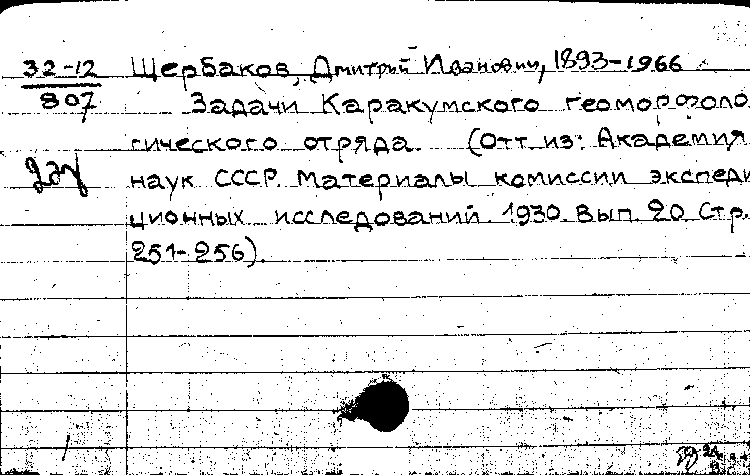 32-12 Щербаков, Дмитрий Иванович, 1893-1966
807 Задачи Каракумского геоморфоло
гического отряда. (Отт. из: Академия
наук СССР. Материалы комиссии экспеди
ционных исследований. 1930. Вып. 20. Стр.
251-256).